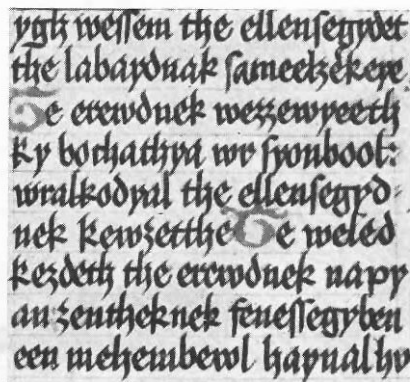 ygh weſſem the ellenſegydet
the labaydnak ſameelzekere
Te erewdnek wezzewyeeth
ky bochathya wr ſyonbool:
wralkodyal the ellenſegyd
nek kewzetthe Te weled
kezdeth the erewdnek napy
an zentheknek feneſſegyben
een mehembewl haynal hv